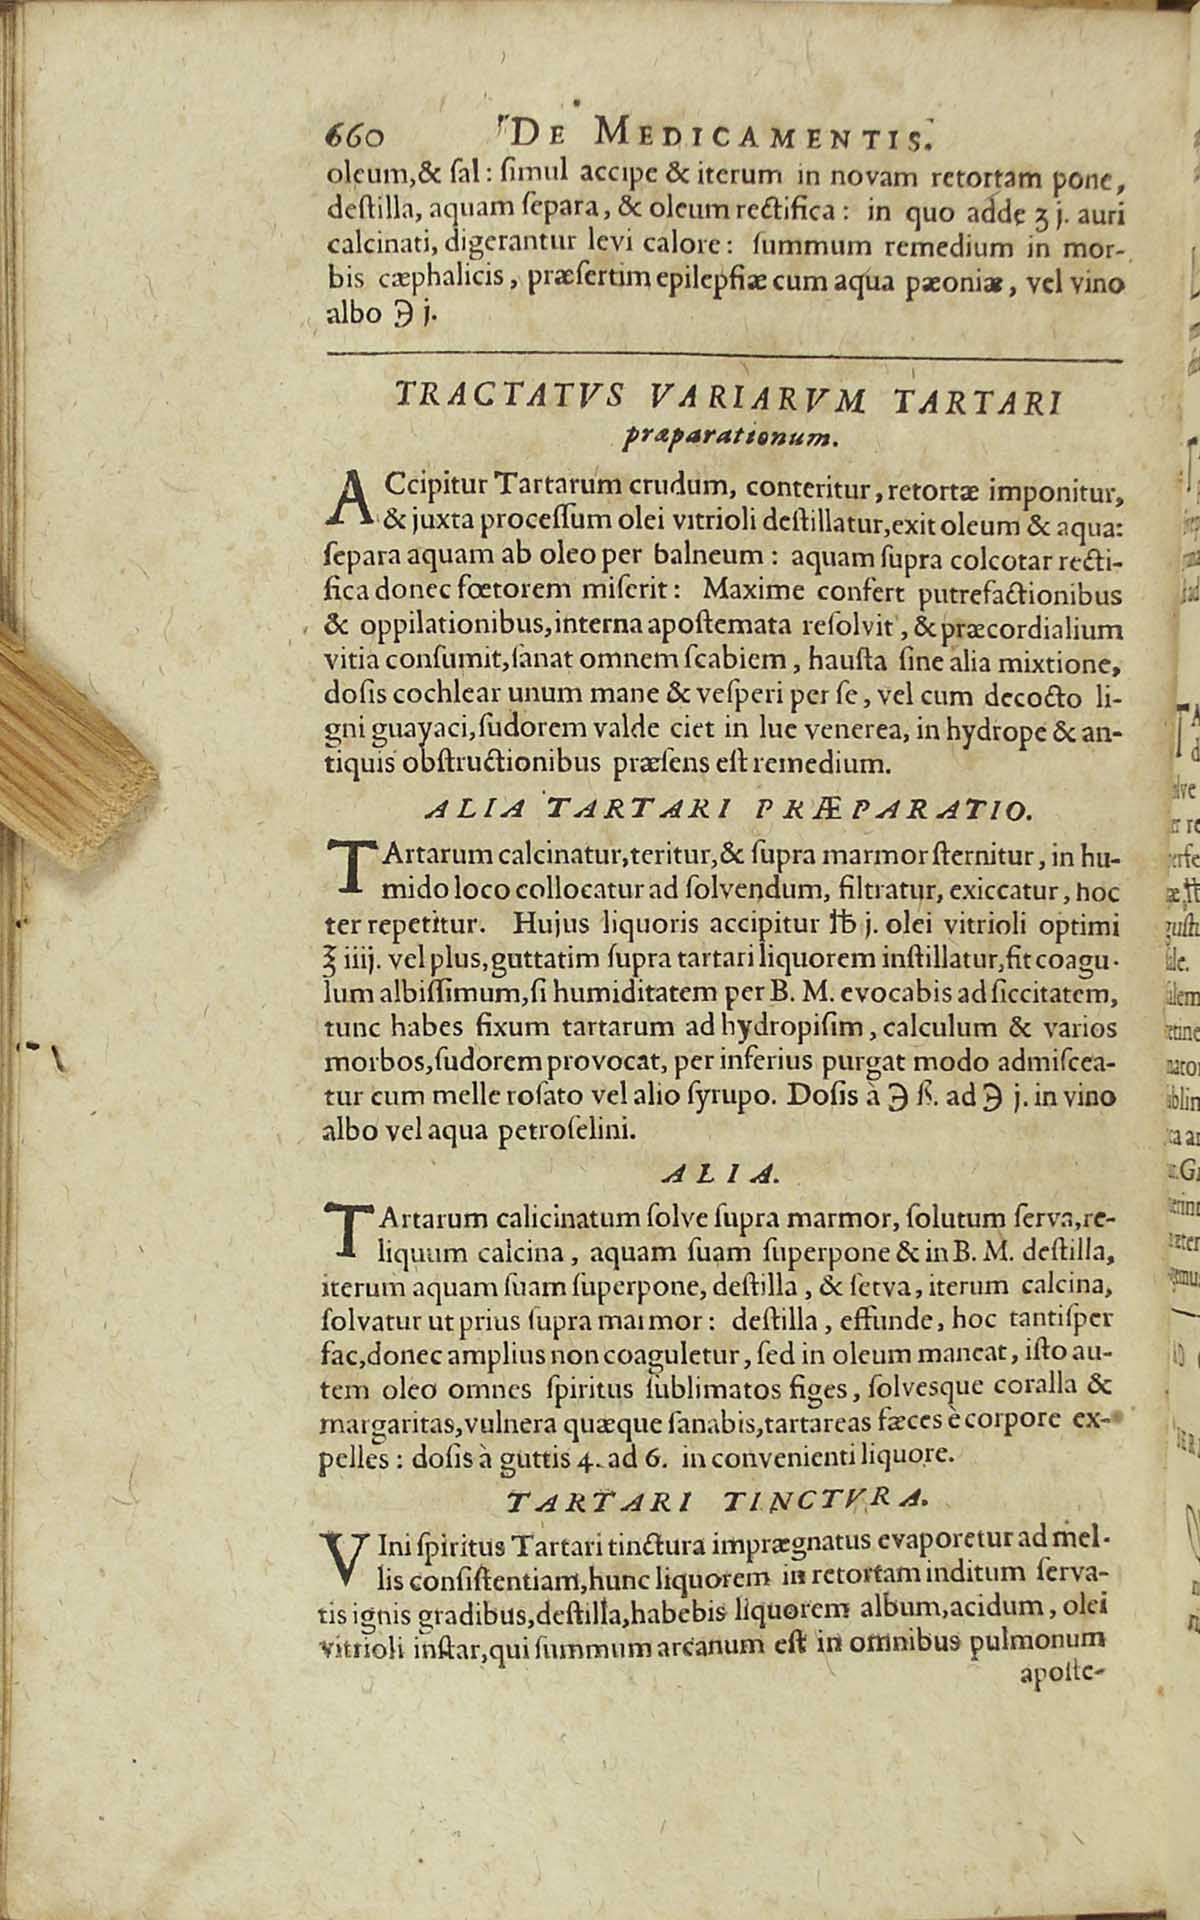 660 DE MEDICAMENTIS.
oleum,& ſal: ſimul accipe & iterum in novam retortam pone,
deſtilla, aquam ſepara, & oleum rectifica: in quo adde ʒ j. auri
calcinati, digerantur levi calore: ſummum remedium in mor-
bis cæphalicis, præſertim epilepſiæ cum aqua pæoniæ, vel vino
albo ℈ j.
TRACTATVS VARIARVM TARTARI
præparationum.
ACcipitur Tartarum crudum, conteritur, retortæ imponitur,
& juxta proceſſum olei vitrioli deſtillatur, exit oleum & aqua:
ſepara aquam ab oleo per balneum: aquam ſupra colcotar recti-
fica donec fœtorem miſerit: Maxime confert putrefactionibus
& oppilationibus, interna apoſtemata reſolvit, & præcordialium
vitia conſumit, ſanat omnem ſcabiem, hauſta ſine alia mixtione,
doſis cochlear unum mane & veſperi per ſe, vel cum decocto li-
gni guayaci, ſudorem valde ciet in lue venerea, in hydrope & an-
tiquis obſtructionibus præſens eſt remedium.
ALIA TARTARI PRÆPARATIO.
TArtarum calcinatur, teritur, & ſupra marmor ſternitur, in hu-
mido loco collocatur ad ſolvendum, filtratur, exiccatur, hoc
ter repetitur. Hujus liquoris accipitur ℔ j. olei vitrioli optimi
℥ iiij. vel plus, guttatim ſupra tartari liquorem inſtillatur, fit coagu-
lum albiſſimum, ſi humiditatem per B. M. evocabis ad ſiccitatem,
tunc habes fixum tartarum ad hydropiſim, calculum & varios
morbos, ſudorem provocat, per inferius purgat modo admiſcea-
tur cum melle roſato vel alio ſyrupo. Doſis à ℈ ß. ad ℈ j. in vino
albo vel aqua petroſelini.
ALIA.
TArtarum calicinatum ſolve ſupra marmor, ſolutum ſerva, re-
liquum calcina, aquam ſuam ſuperpone & in B. M. deſtilla,
iterum aquam ſuam ſuperpone, deſtilla, & ſerva, iterum calcina,
ſolvatur ut prius ſupra marmor: deſtilla, effunde, hoc tantiſper
fac, donec amplius non coaguletur, ſed in oleum maneat, iſto au-
tem oleo omnes ſpiritus ſublimatos figes, ſolvesque coralla &
margaritas, vulnera quæque ſanabis, tartareas fæces è corpore ex-
pelles: doſis à guttis 4. ad 6. in convenienti liquore.
TARTARI TINCTVRA.
VIni ſpiritus Tartari tinctura imprægnatus evaporetur ad mel-
lis conſiſtentiam, hunc liquorem in retortam inditum ſerva-
tis ignis gradibus, deſtilla, habebis liquorem album, acidum, olei
vitrioli inſtar, qui ſummum arcanum eſt in omnibus pulmonum
apoſte-